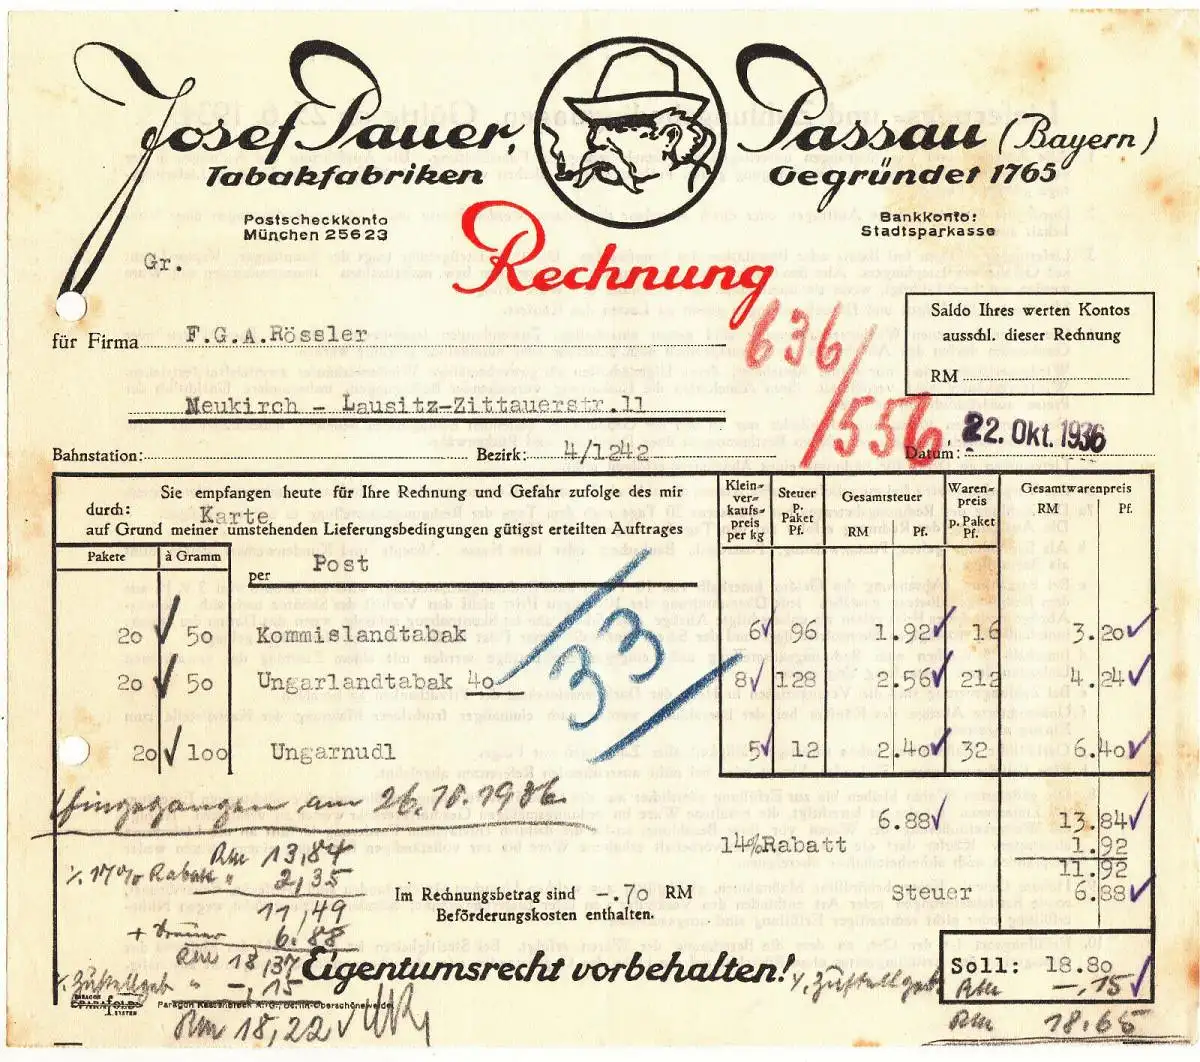 Josef Pauer, Passau (Bayern)
Tabakfabriken Gegründet 1765
Postscheckkonto
München 25623
Bankkonto:
Stadtsparkasse
Rechnung
Gr.
für Firma F.G.A.Rössler
Neukirch - Lausitz-Zittauerstr.11
636/556
Saldo Ihres werten Kontos
ausschl. dieser Rechnung
RM
Bahnstation: Bezirk: 4/1242 Datum: 22. Okt. 1936
Sie empfangen heute für Ihre Rechnung und Gefahr zufolge des mir
durch: Karte
auf Grund meiner umstehenden Lieferungsbedingungen gütigst erteilten Auftrages
Klein-
ver-
kaufs-
preis
per kg
Steuer
p.
Paket
Pf.
Gesamtsteuer
RM Pf.
Waren-
preis
p. Paket
Pf.
Gesamtwarenpreis
RM Pf.
Pakete à Gramm
per Post
20 50 Kommislandtabak 6 96 1.92 16 3.20
20 50 Ungarlandtabak 40 8 128 2.56 212 4.24
20 100 Ungarnudl 5 12 2.40 32 6.40
33
Eingegangen am 26.10.1936.
6.88 13.84
14%Rabatt 1.92
11.92
Steuer 6.88
RM 13,84
% 17% Rabatt " 2,35
11,49
+ Steuer 6,88
RM 18,37
% Zustellgeb " -,15
RM 18,22
Im Rechnungsbetrag sind -.70 RM
Beförderungskosten enthalten.
Eigentumsrecht vorbehalten!
Soll: 18.80
% Zustellgeb RM -,15
RM 18,65
PARAGON
PARAFOLDS
SYSTEM
Paragon Kassenblock A.-G., Berlin-Oberschöneweide